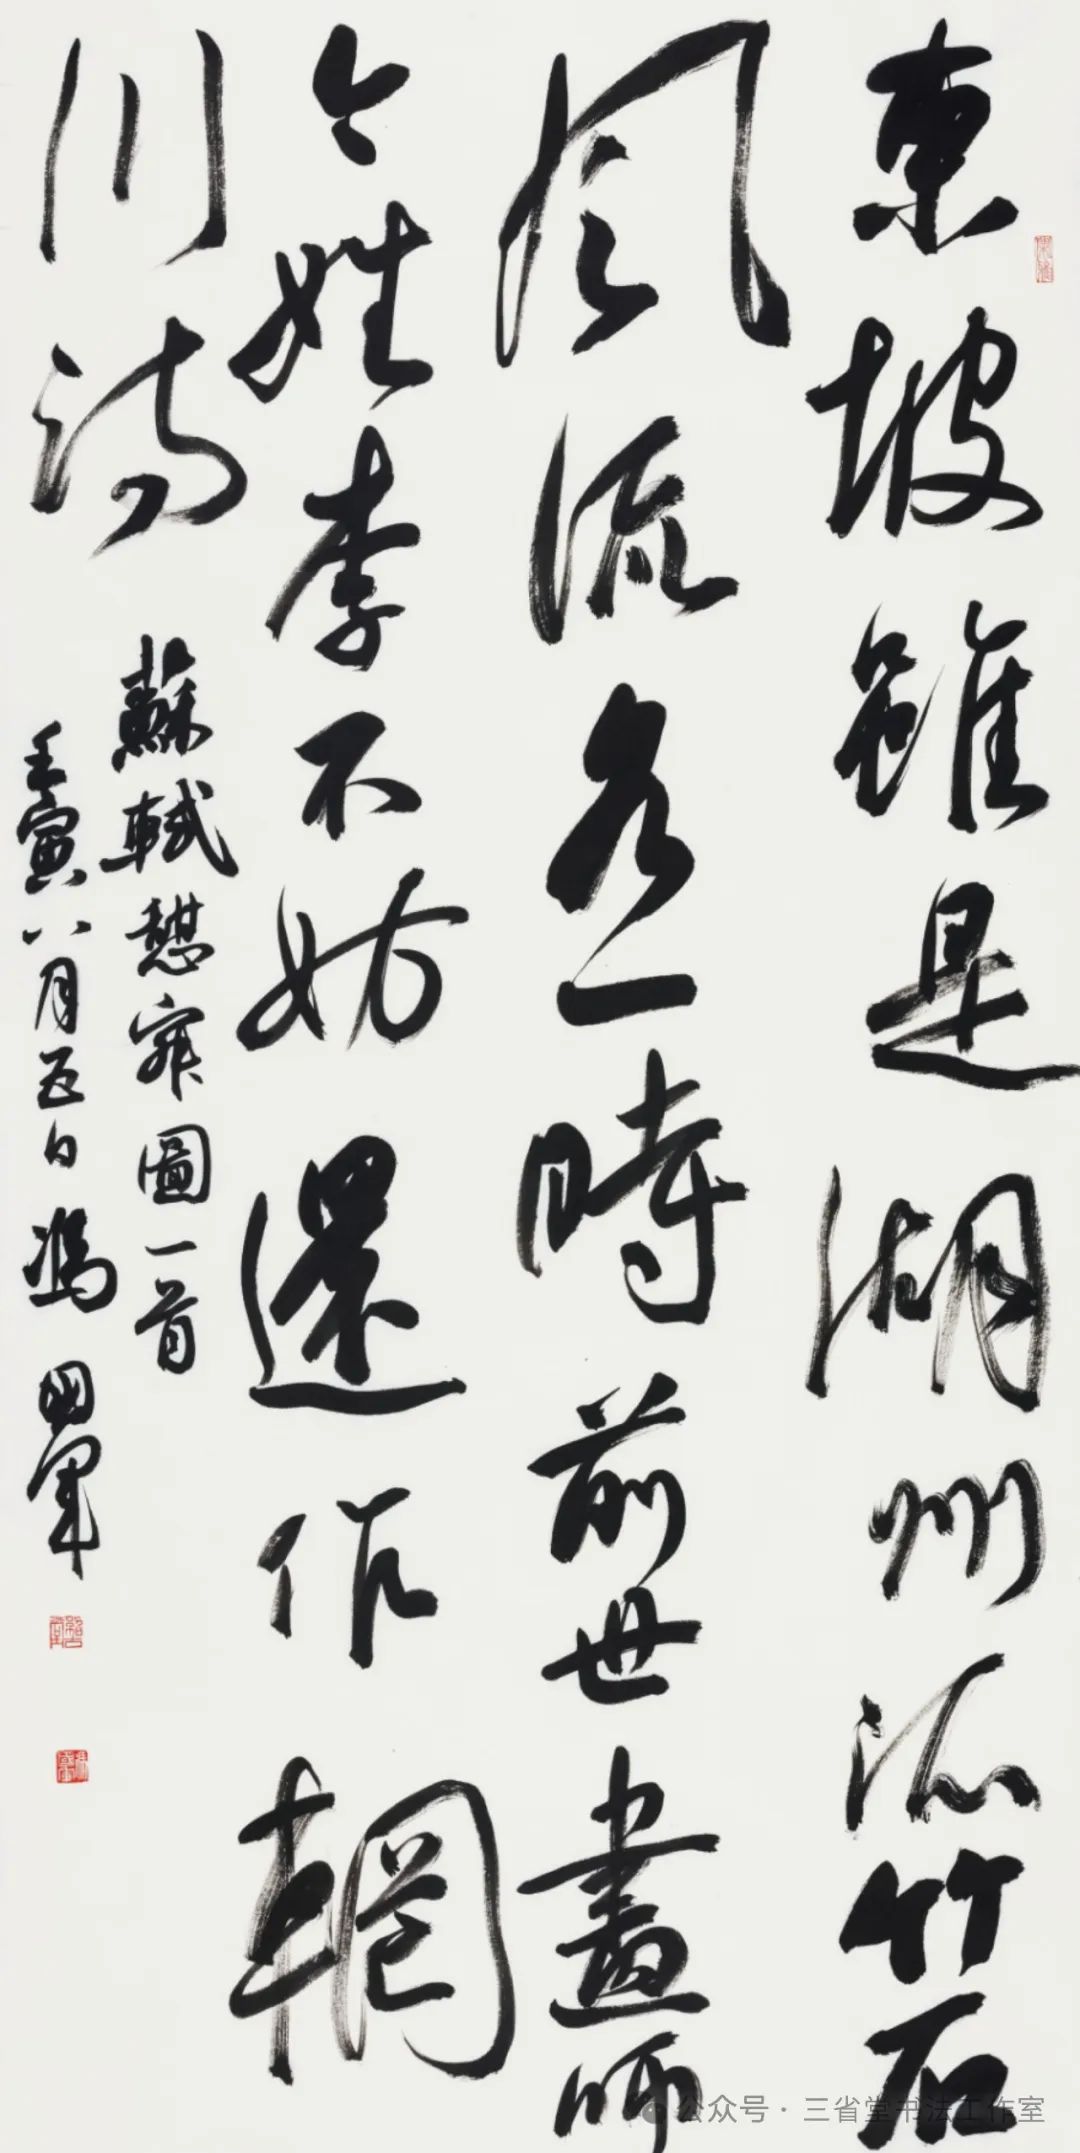 東坡雖是湖州派竹石
風流各一時前世畫師
今姓李不妨還作輞
川詩
蘇軾憩寂圖一首
壬寅八月五日馮
公众号·三省堂书法工作室